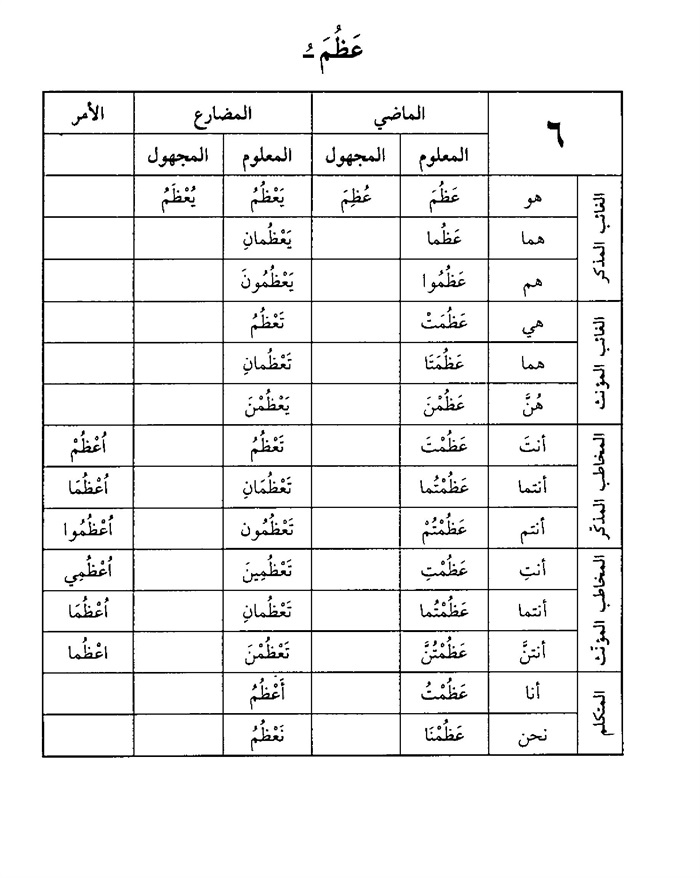 عَظُمَ ـُ
٦ الماضي المضارع الأمر
المعلوم المجهول المعلوم المجهول
الغائب المذكر
هو عَظُمَ عُظِمَ يَعْظُمُ يُعْظَمُ
هما عَظُما يَعْظُمانِ
هم عَظُمُوا يَعْظُمُونَ
الغائب المؤنث
هي عَظُمَتْ تَعْظُمُ
هما عَظُمَتَا تَعْظُمانِ
هُنَّ عَظُمْنَ يَعْظُمْنَ
المخاطب المذكّر
أنتَ عَظُمْتَ تَعْظُمُ اُعْظُمْ
أنتما عَظُمْتُما تَعْظُمَانِ اُعْظُمَا
أنتم عَظُمْتُمْ تَعْظُمُون اُعْظُمُوا
المخاطب المؤنّث
أنتِ عَظُمْتِ تَعْظُمِينَ اُعْظُمِي
أنتما عَظُمْتُما تَعْظُمانِ اُعْظُمَا
أنتنَّ عَظُمْتُنَّ تَعْظُمْنَ اعْظُما
المتكلم
أنا عَظُمْتُ أَعْظُمُ
نحن عَظُمْنَا نَعْظُمُ